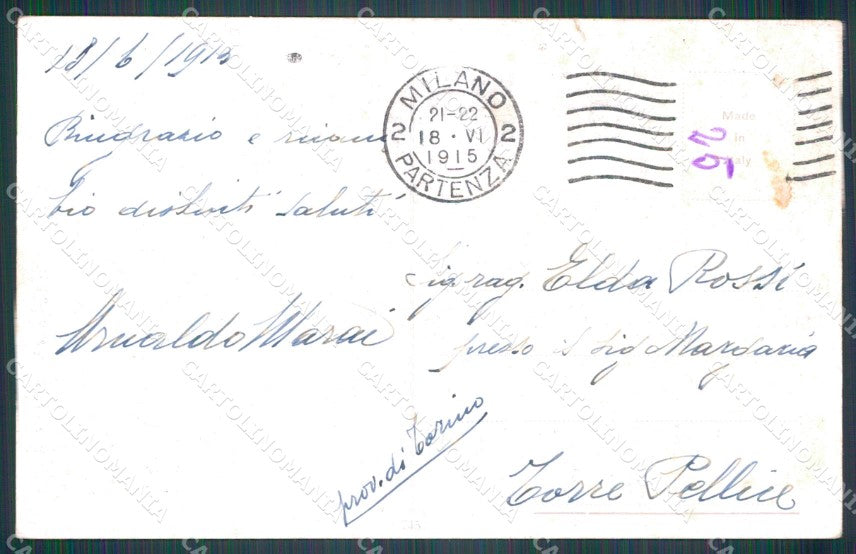 18/6/1915
Ringrazio e ricam
bio distinti saluti
Arnaldo Marai
MILANO
21-22
2 18 · VI 2
1915
PARTENZA
Made
in
Italy
25
Sig rag. Elda Rossi
presso il sig Margaria
Torre Pellice
prov. di Torino
CARTOLINOMANIA